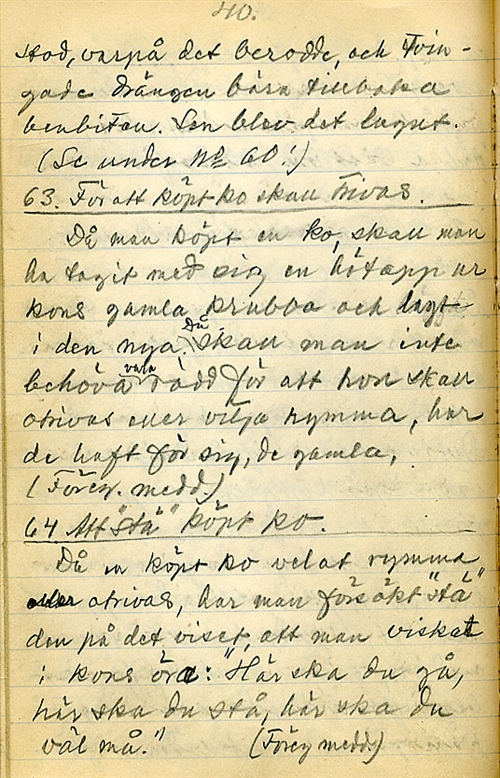 40.
stod, varpå det berodde, och tvin-
gade drängen bära tillbaka
benbiten. Sen blev det lugnt.
(Se under № 60!)
63. För att köpt ko skall trivas.
Då man köpt en ko, skall man
ha tagit med sig en hötapp ur
kons gamla krubba och lagt
i den nya. Då skall man inte
behöva vara rädd för att kon skall
otrivas eller vilja rymma, har
de haft för sig, de gamla,
(Föreg. medd.)
64 Att "stä" köpt ko.
Då en köpt ko velat rymma
eller otrivas, har man försökt "stä"
den på det viset, att man viskat
i kons öra: "Här ska du gå,
här ska du stå, här ska du
väl må." (Föreg medd.)